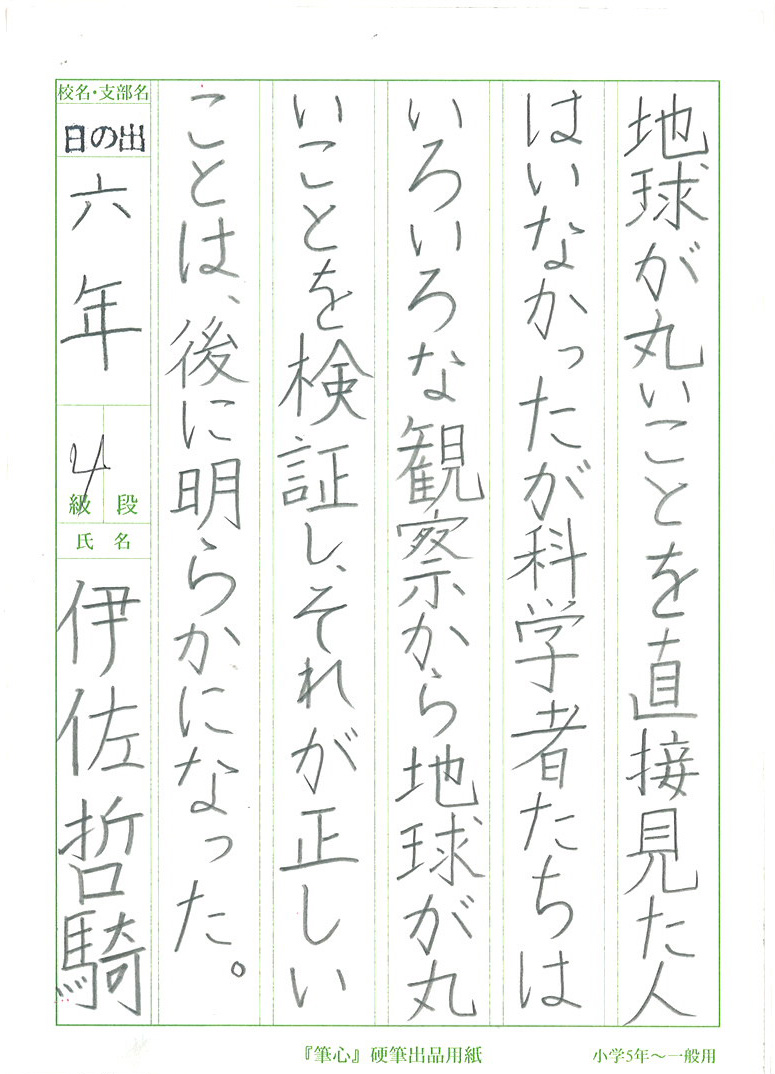 地球が丸いことを直接見た人
はいなかったが科学者たちは
いろいろな観察から地球が丸
いことを検証し、それが正しい
ことは、後に明らかになった。
校名・支部名
日の出
六年
4
級 段
氏名
伊佐哲騎
『筆心』硬筆出品用紙
小学5年～一般用